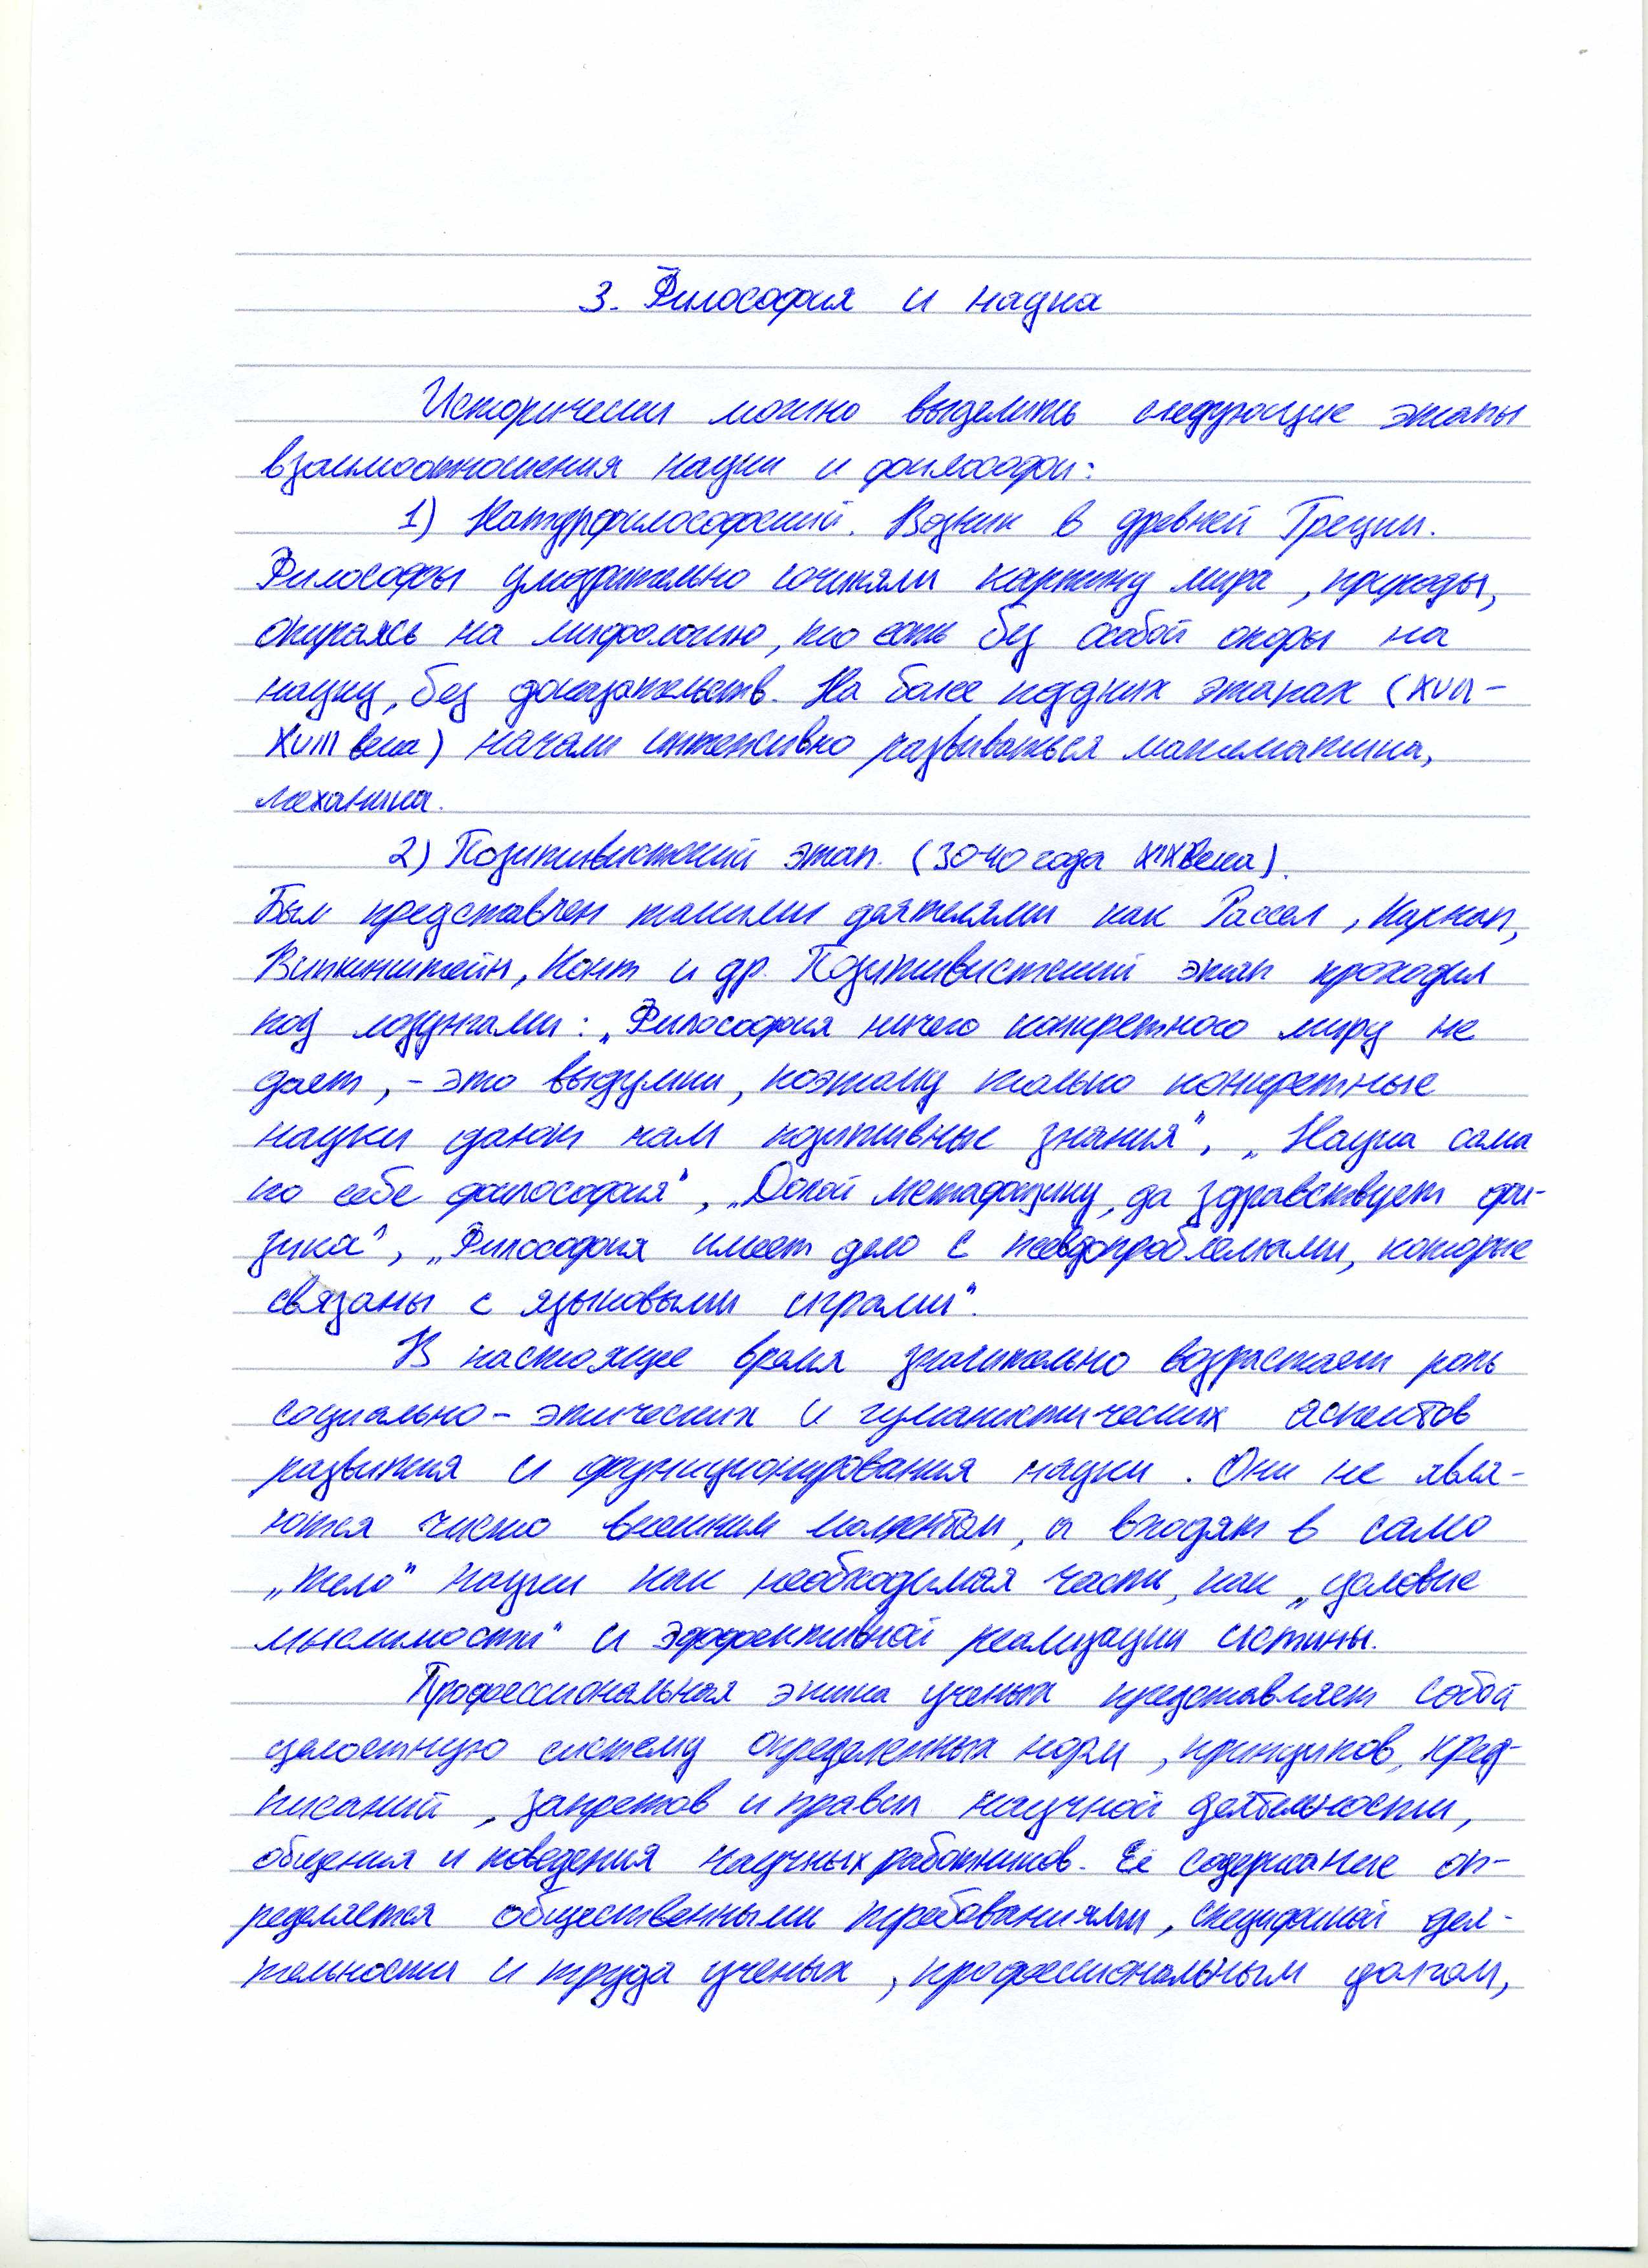 3. Философия и наука
Исторически можно выделить следующие этапы
взаимоотношения науки и философи:
1) Натурфилософский. Возник в древней Греции.
Философы умозрительно сочиняли картину мира, природы,
опираясь на мифологию, то есть без особой опоры на
науку, без доказательств. На более поздних этапах (XVII-
XVIII века) начали интенсивно развиваться математика,
механика.
2) Позитивистский этап. (30-40 года XIX века).
Был представлен такими деятелями как Рассел, Карнап,
Витгинштейн, Конт и др. Позитивистский этап проходил
под лозунгами: „Философия ничего конкретного миру не
дает, - это выдумки, поэтому только конкретные
науки дают нам позитивные знания", „Наука сама
по себе философия", „Долой метафизику, да здравствует фи-
зика", „Философия имеет дело с псевдопроблемами, которые
связаны с языковыми играми".
В настоящее время значительно возрастает роль
социально-этических и гуманистических аспектов
развития и функционирования науки. Они не явля-
ются чисто внешним моментом, а входят в само
„тело" науки как необходимая часть, как „условие
мыслимости" и эффективной реализации истины.
Профессиональная этика ученых представляет собой
целостную систему определенных норм, принципов, пред-
писаний, запретов и правил научной деятельности,
общения и поведения научных работников. Её содержание оп-
ределяется общественными требованиями, спецификой дея-
тельности и труда ученых, профессиональным долгом,